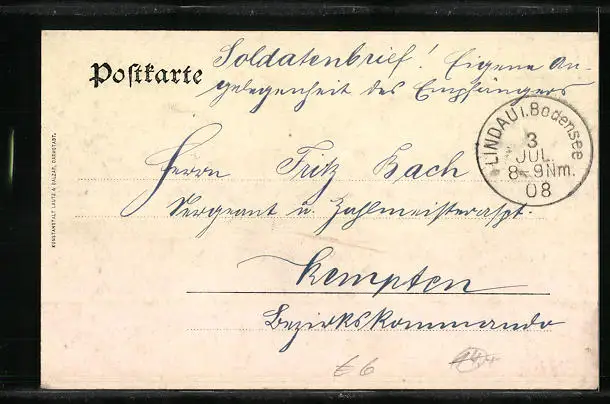 Postkarte
Soldatenbrief! Eigene An-
gelegenheit des Empfängers
LINDAU i. Bodensee
3
JUL.
8-9Nm.
08
Herrn Fritz Bach
Sergeant u. Zahlmeisteraspt.
Kempten
Bezirkskommando
KUNSTANSTALT LAUTZ & BALZAR, DARMSTADT.